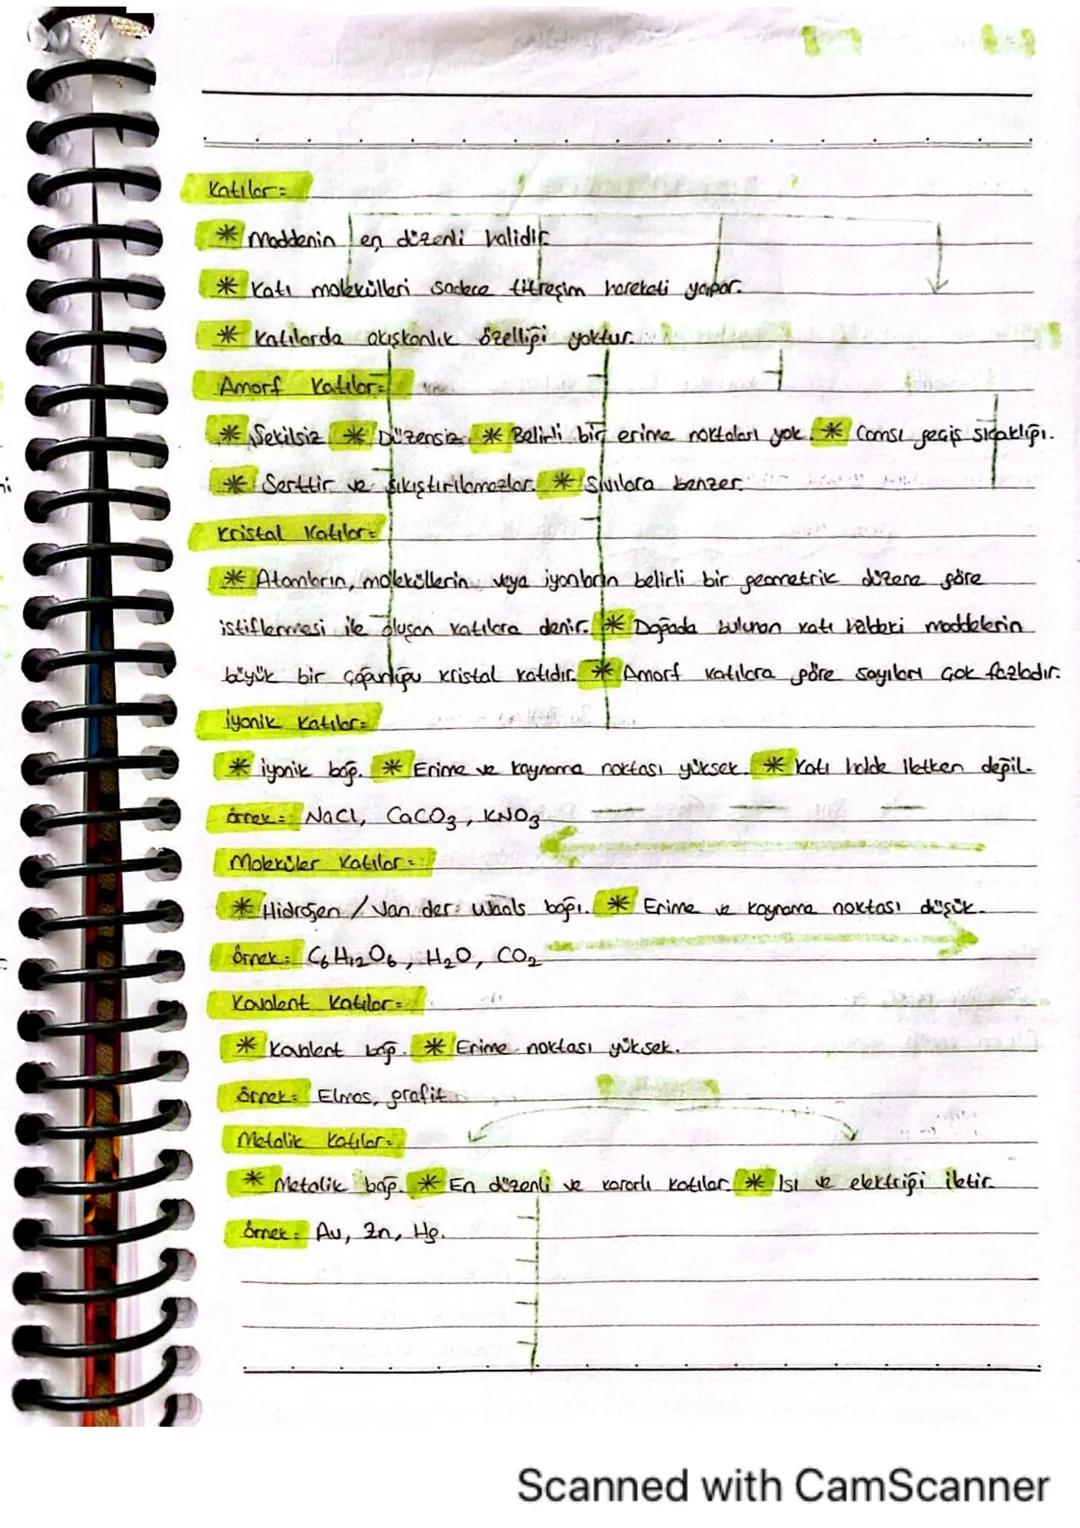 Katılar=
* Maddenin en düzenli halidir.
* Katı molekülleri sadece titreşim hareketi yapar.
* Katılarda akışkanlık özelliği yoktur.
Amorf Katılar=
* Şekilsiz * Düzensiz * Belirli bir erime noktaları yok * Camsı geçiş sıcaklığı.
* Serttir ve sıkıştırılamazlar. * Sıvılara benzer.
Kristal Katılar=
* Atomların, moleküllerin veya iyonların belirli bir geometrik düzene göre
istiflenmesi ile oluşan katılara denir. * Doğada bulunan katı haldeki maddelerin
büyük bir çoğunluğu kristal katıdır. * Amorf katılara göre sayıları çok fazladır.
İyonik Katılar=
* iyonik bağ. * Erime ve kaynama noktası yüksek. * Katı halde iletken değil.
Örnek= NaCl, CaCO3, KNO3
Moleküler Katılar=
* Hidrojen / Van der Waals bağı. * Erime ve kaynama noktası düşük.
Örnek= C6H12O6, H2O, CO2
Kovalent Katılar=
* Kovalent bağ. * Erime noktası yüksek.
Örnek= Elmas, grafit
Metalik Katılar=
* Metalik bağ. * En düzenli ve kararlı katılar. * Isı ve elektriği iletir.
Örnek= Au, Zn, Hg.
Scanned with CamScanner